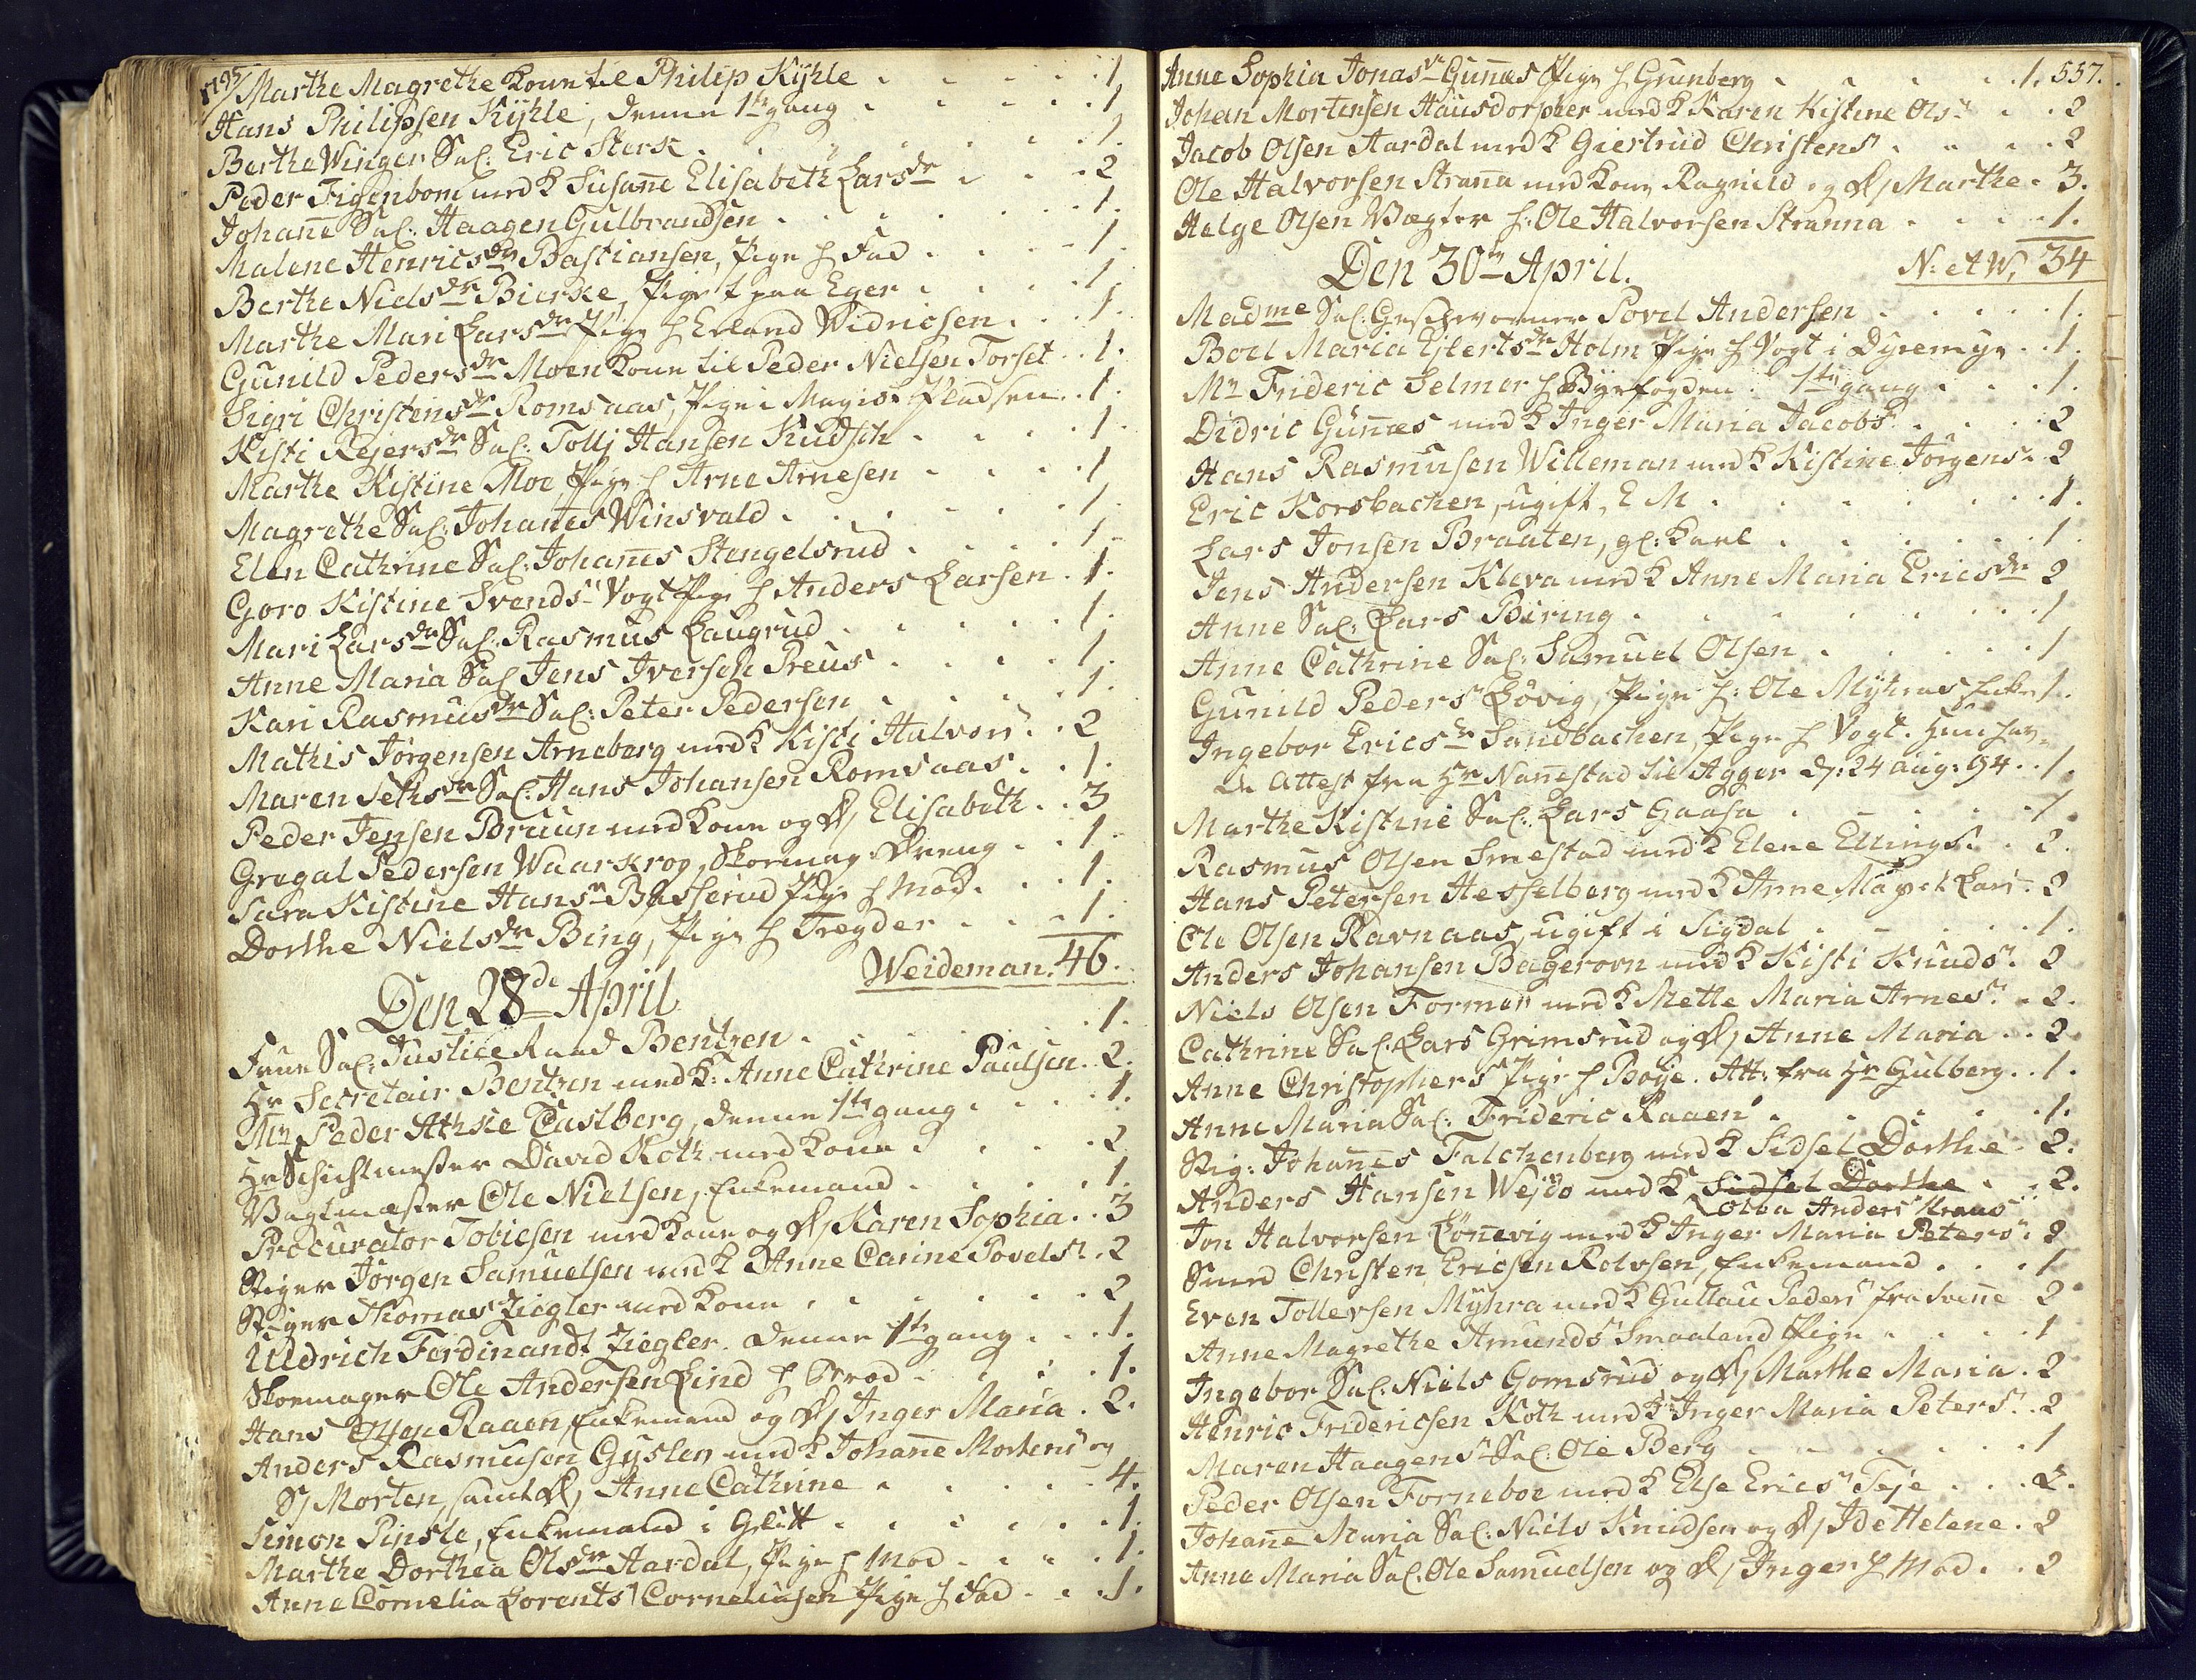 1795/ Marthe Magrethe Kone til Philip Kÿhle . . . . . 1.
Hans Philipsen Kÿhle, denne 1ste gang . . . . . 1
Berthe Winger Sal: Eric Sterk . . . . . 1.
Peder Figenbom med K Susanne Elisabeth Larsdr . . . 2
Johanne Sal: Haagen Gulbrandsen . . . . . 1.
Malene Henricsdr Bastiansen, Pige h Fad . . . . 1.
Berthe Nielsdr Bierke, Pige paa Eger . . . . 1
Marthe Mari Larsdr Pige h Erland Didricsen . . . 1.
Gunild Pedersdr Moen Kone til Peder Nielsen Torset . . 1.
Sigri Christensdr Romsaas, Pige i Magis: Pladsen . . 1.
Kisti Rejersdr Sal: Tollj Hansen Kudsch . . . . 1.
Marthe Kistine Moe Pige h Arne Arnesen . . . . 1
Magrethe Sal: Johannes Winsvald . . . . . 1
Elen Cathrine Sal: Johannes Stengelsrud . . . . 1.
Goro Kistine Svendsr Vogt Pige h Anders Larsen . 1.
Mari Larsdr Sal: Rasmus Laugrud . . . . 1.
Anne Maria Sal Jens Iversen Preus . . . . 1.
Kari Rasmusdr Sal: Peter Pedersen . . . . 1.
Mathis Jörgensen Arneberg med K Kisti Halvorsr . . 2
Maren Sethsdr Sal: Hans Johansen Romsaas . . 1.
Peder Jensen Bruun med Kone og D/ Elisabeth . . 3
Gregal Pedersen Waarkrog, Skomag: Dreng . . 1.
Sara Kistine Hansr Basserud Pige h Mod. . . 1.
Dorthe Nielsdr Bing, Pige h Tregder . . . 1.
Weideman. 46.
Den 28de April
Frue Sal: Justice Raad Bentzen . . . . 1.
Hr Secretair Bentzen med K: Anne Cathrine Paulsen . 2.
Mr Peder Athke Castberg, denne 1ste gang . . . . 1.
Hr Schichtmester David Koth med Kone . . . 2
Vagtmester Ole Nielsen, Enkemand . . . . 1.
Procurator Tobiesen med Kone og D/ Karen Sophia . . 3
Stiger Jörgen Samuelsen med K Anne Carine Povelsr . 2
Stiger Thomas Ziegler med Kone . . . . . 2
Uldrich Ferdinandt Ziegler. denne 1ste gang . . . 1.
Skoemager Ole Andersen Lind h Brod . . . . 1.
Hans Olsen Raaen, Enkemand og D/ Inger Maria . 2.
Anders Rasmusen Gislen med K Johanne Mortensr og
S/ Morten, samt D/ Anne Cathrine . . . . 4.
Simon Pinsle, Enkemand i Glitt . . . . . 1.
Marthe Dorthea Olsdr Aardal, Pige h Mod . . . 1.
Anne Cornelia Lorents Corneliusen Pige h Fad . . 1.
Anne Sophia Jonasdr Gunnæs Pige h Grunberg . . . . 1. 557.
Johan Mortensen Hausdorpher med K Karen Kistine Olsr . . 2
Jacob Olsen Aardal med K Giertrud Christensr . . . . 2
Ole Halvorsen Stranna med Kone Ragnild og D/ Marthe . 3.
Helge Olsen Vægter h: Ole Halvorsen Stranna . . . . 1.
Den 30te April. N: et W, 34
Madme Sal: Geschworner Povel Andersen . . . . 1.
Boel Maria Ejlertsdr Holm Pige h Vogt i Dyremyr . . 1.
Mr Frideric Selmer h Byefogden. 1ste gang . . . 1.
Didric Gunnæs med K Inger Maria Jacobsr . . . . 2
Hans Rasmusen Willeman med K Kistine Jörgensr . 2
Eric Korsbachen, ugift, E M . . . . . . 1.
Lars Jonsen Braaten, gl: Karl . . . . . 1.
Jens Andersen Kleva med K Anne Maria Ericsdr 2
Anne Sal: Lars Büring . . . . . . 1
Anne Cathrine Sal: Samuel Olsen . . . . . 1
Gunild Pedersr Lövig, Pige h: Ole Mÿhras Enke 1.
Ingebor Ericsdr Sandbachen, Pige h Vogt. Hun hav-
de Attest fra Hr Nannestad til Agger d: 24 Aug: 94 . . 1.
Marthe Kistine Sal: Lars Gaasa . . . . . 1.
Rasmus Olsen Smestad med K Elene Ellingsr . . 2.
Hans Petersen Hesselberg med K Anne Margrt Larsr . 2
Ole Olsen Ravnaas, ugift i Sigdal . . . . . 1.
Anders Johansen Bagerovn med K Kisti Knudsr . 2
Niels Olsen Former med K Mette Maria Arnesr . . 2.
Cathrine Sal. Lars Grimsrud og D/ Anne Maria . . 2
Anne Christophersr Pige h Boÿe. Att: fra Hr Gulberg . . 1.
Anne Maria Sal: Frideric Raaen . . . . 1.
Stig: Johannes Falchenberg med K Sidsel Dorthe . 2.
Anders Hansen Wejdo med K Sidsel Dorthe . . 2.
Lobba Andersr Kraus
Jon Halvorsen Lönnevig med K Inger Maria Petersr . 2
Smed Christen Ericsen Rolvsen, Enkemand . . . 1
Even Tollevsen Mÿhra med K Gullau Pedersr fra Svenne 2
Anne Magrethe Amundsr Smaaland Pige . . . . 1
Ingebor Sal: Niels Gomsrud og D/ Marthe Maria . 2
Henric Fridericsen Koth med K Inger Maria Petersr . 2
Maren Haagensr Sal: Ole Berg . . . . . 1
Peder Olsen Forneboe med K Else Ericsr Teje . . . 2.
Johanne Maria Sal: Niels Knudsen og D/ Ide Helene . 2
Anne Maria Sal. Ole Samuelsen og D/ Inger h Mod . . 2